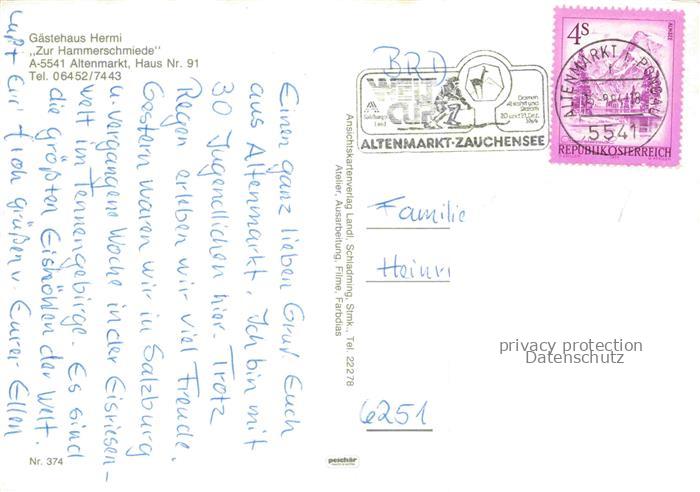 Gästehaus Hermi
„Zur Hammerschmiede"
A-5541 Altenmarkt, Haus Nr. 91
Tel. 06452/7443
Einen ganz lieben Gruß Euch
aus Altenmarkt. Ich bin mit
30 Jugendlichen hier. Trotz
Regen erleben wir viel Freude.
Gestern waren wir in Salzburg
u. vergangene Woche in der Eisriesen-
welt im Tennengebirge. Es sind
die größten Eishöhlen der Welt.
grüßen v. Eurer Ellen
Nr. 374
Ansichtskartenverlag Landl, Schladming, Stmk., Tel. 22278
Atelier, Ausarbeitung, Filme, Farbdias
peschär
BRD
WELT
CUP
Salzburger
Land
Damen
Abfahrt und
20 und 21. Dez.
ALTENMARKT-ZAUCHENSEE
4S
ALMSEE
ALTENMARKT i. PONGAU
5541
REPUBLIK ÖSTERREICH
Familie
Heinri
6251
privacy protection
Datenschutz